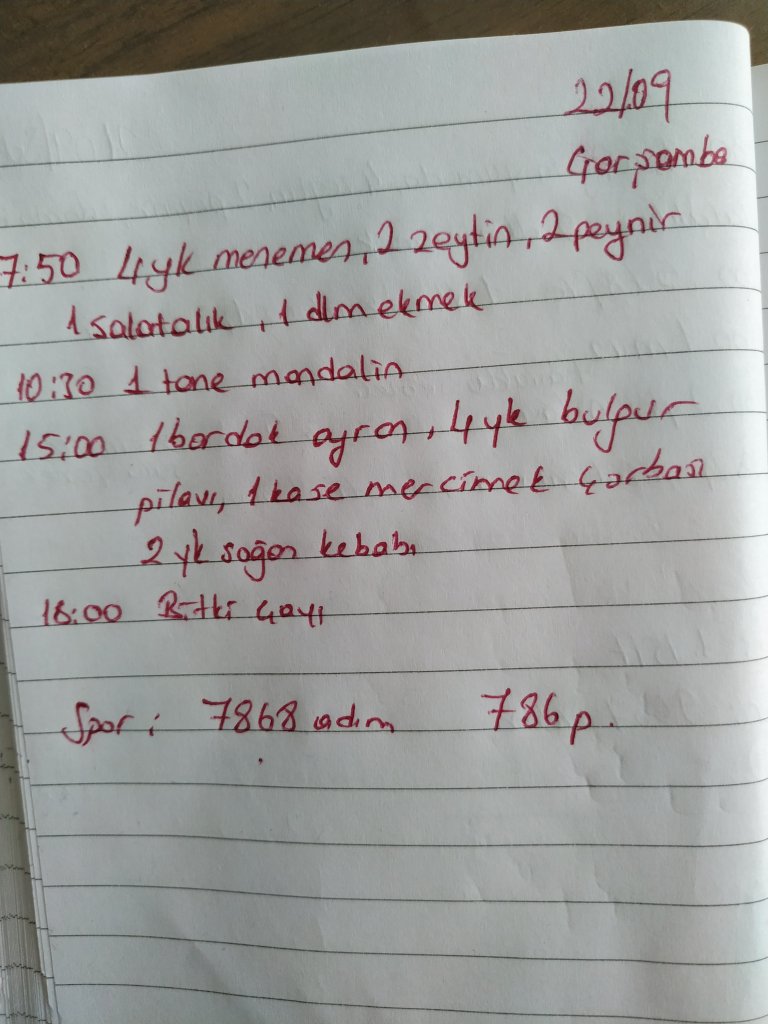 22/09
Çarşamba
7:50 4 yk menemen, 2 zeytin, 2 peynir
1 salatalık, 1 dlm ekmek
10:30 1 tane mandalin
15:00 1 bardak ayran, 4 yk bulgur
pilavı, 1 kase mercimek çorbası
2 yk soğan kebabı
18:00 Bitki çayı
Spor: 7868 adım 786 p.